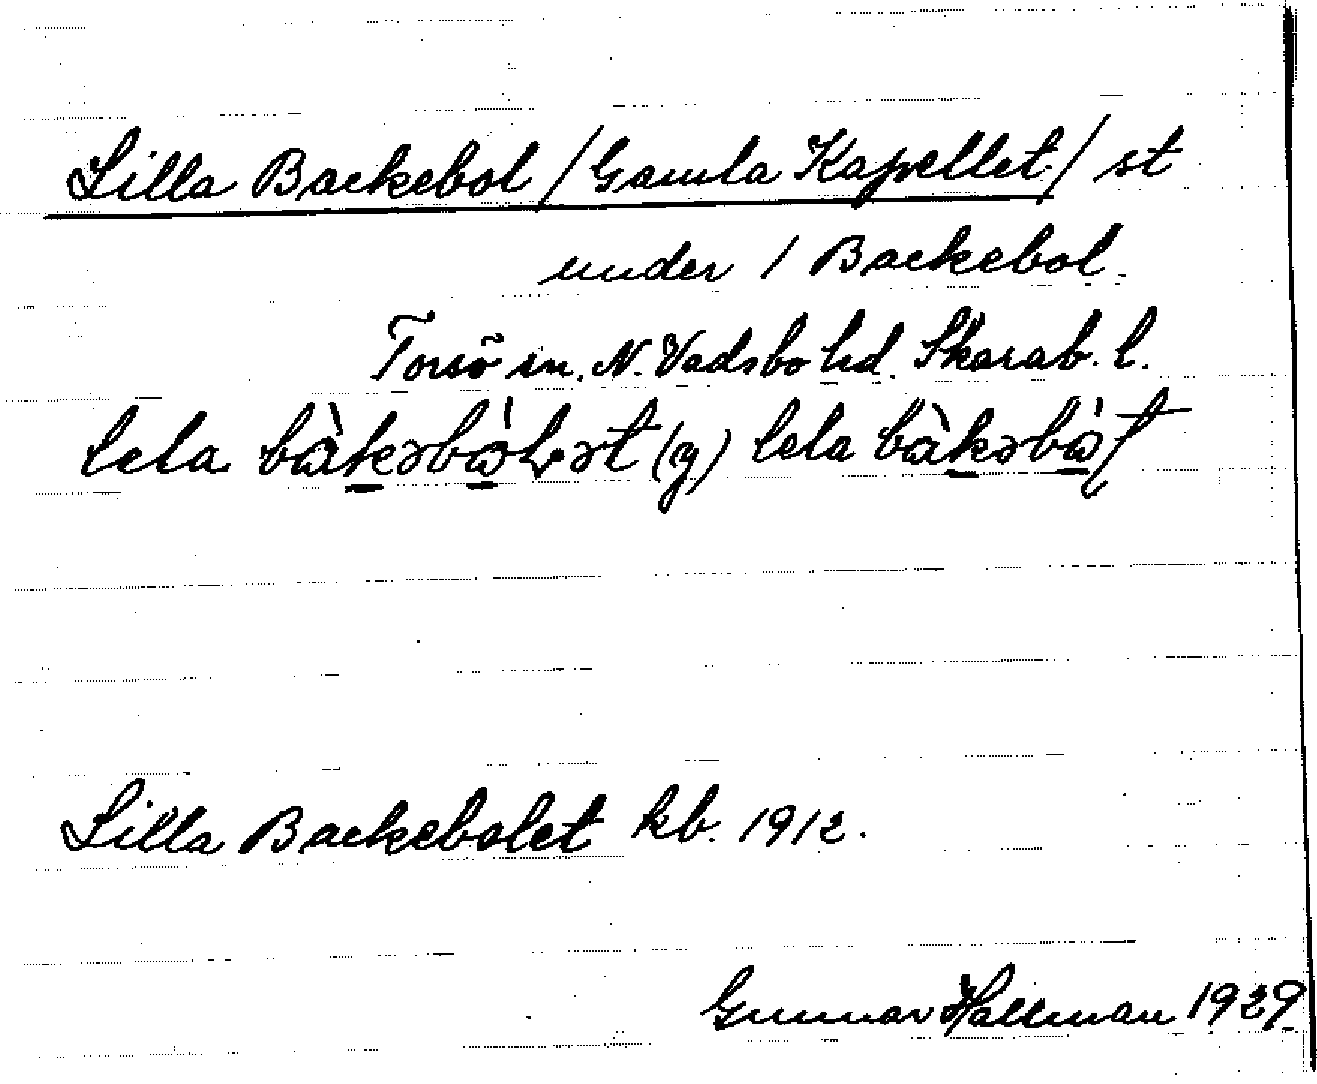 Lilla Backebol /Gamla Kapellet/ st
under 1 Backebol.
Torsö sn. N. Vadsbo hd. Skarab. l.
lela bàkəbòlət (y) lela
Lilla Backebolet kb. 1912.
Gunnar Hallman 1929